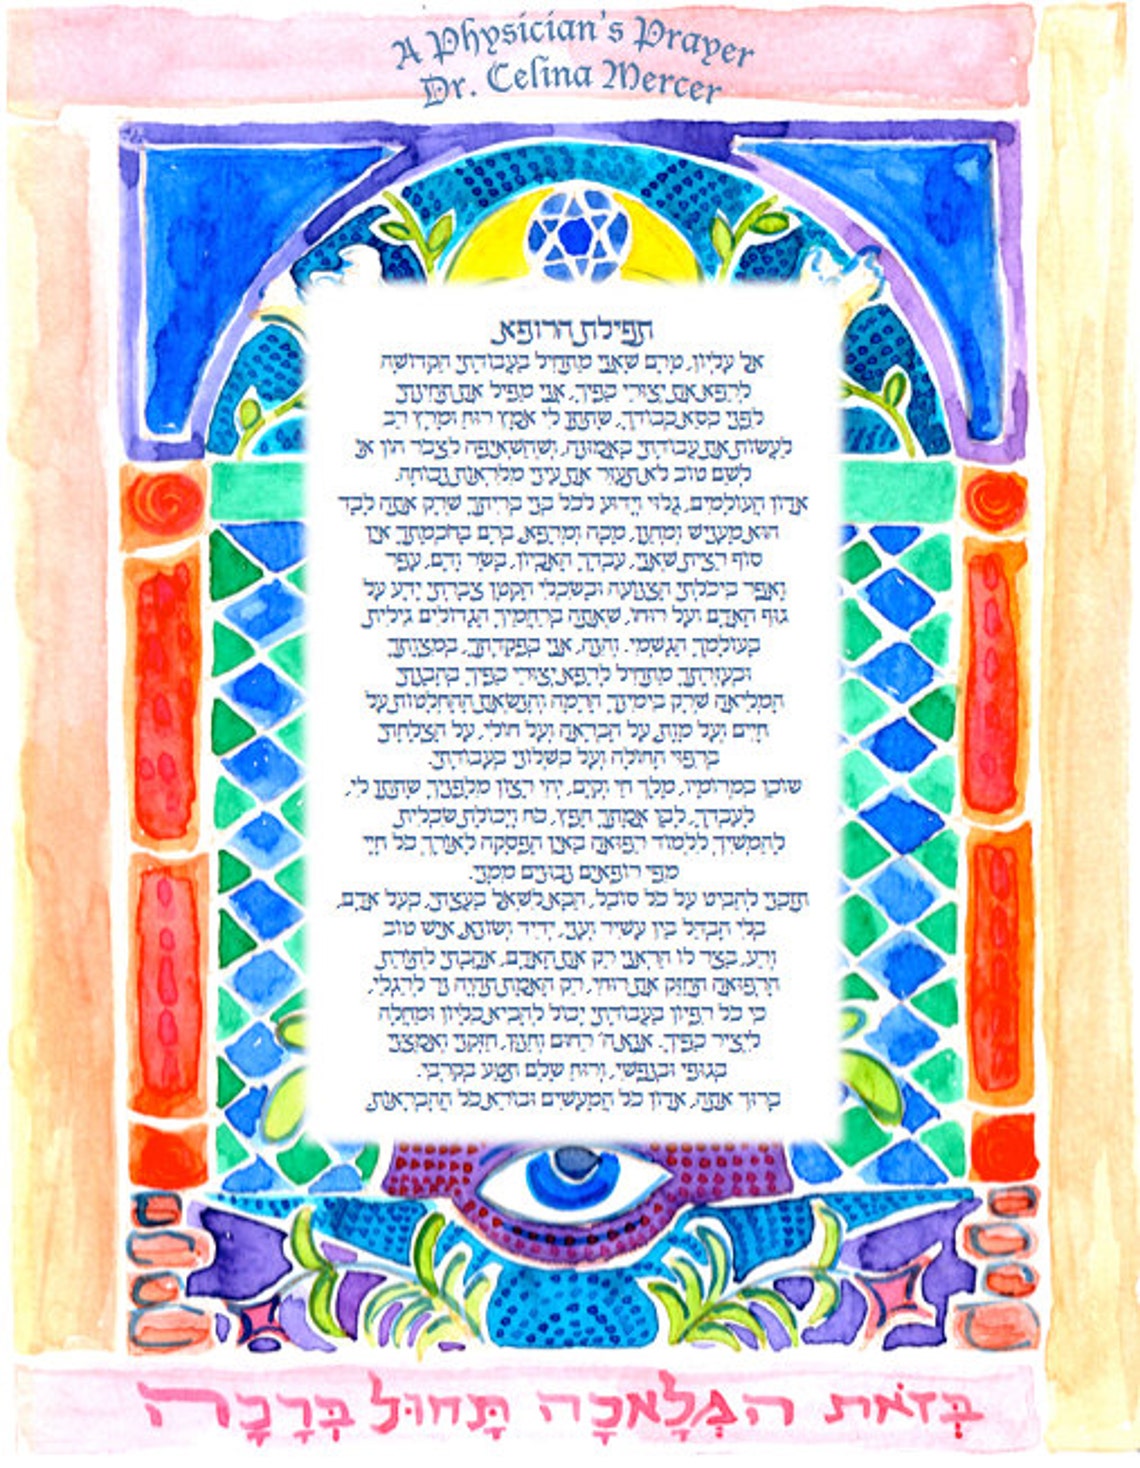 A Physician's Prayer
Dr. Celina Mercer
תפילת הרופא
אל עליון, טרם שאני מתחיל בעבודתי הקדושה
לרפא את יצורי כפיך, אני מפיל את תחינתי
לפני כסא כבודך, שתתן לי אמץ רוח ומרץ רב
לעשות את עבודתי באמונה, ושהשאיפה לצבר הון או
לשם טוב לא תעור את עיני מלראות נכוחה.
אדון העולמים, גלוי וידוע לכל בני בריתך שרק אתה לבד
הוא מעניש ומחון, מכה ומרפא, ברם בחכמתך אין
סוף רצית שאני, עבדך האביון, בשר ודם, עפר
ואפר ביכלתי הצנועה ובשכלי הקטן צברתי ידע על
גוף האדם ועל רוחו, שאתה ברחמיך הגדולים גילית
בעולמך הגשמי. והנה, אני בפקדתך, במצותך
ובעזרתך מתחיל לרפא יצורי כפיך בתבנתי
המליאה שרק בימינך הרמה והנשאת ההחלטות על
חיים ועל מות, על הבראה ועל חולי, על הצלחתי
ברפוי החולה ועל כשלוני בעבודתי.
שוכן במרומיו, מלך חי וקים, יהי רצון מלפניך שתתן לי,
לעבדך, לבן אמתך חפץ, כח ויכולת שכלית
להמשיך ללמוד רפואה באין הפסקה לאורך כל חיי
מפי רופאים נבונים ממני.
חזקני להביט על כל סובל, הבא לשאל בעצתי, כעל אדם,
בלי הבדל בין עשיר ועני, ידיד ושונא, איש טוב
ורע, בצר לו הראני רק את האדם, אהבתי לתורת
הרפואה תחזק את רוחי, רק האמת תהיה נר לרגלי,
כי כל רפיון בעבודתי יכול להביא כליון ומחלה
ליציר כפיך. אנא ה' רחום וחנון, חזקני ואמצני
בגופי ובנפשי, ורוח שלם תטע בקרבי.
ברוך אתה, אדון כל המעשים ובורא כל התבראות.
בְּזֹאת הַמְּלָאכָה תָּחוּל בְּרָכָה